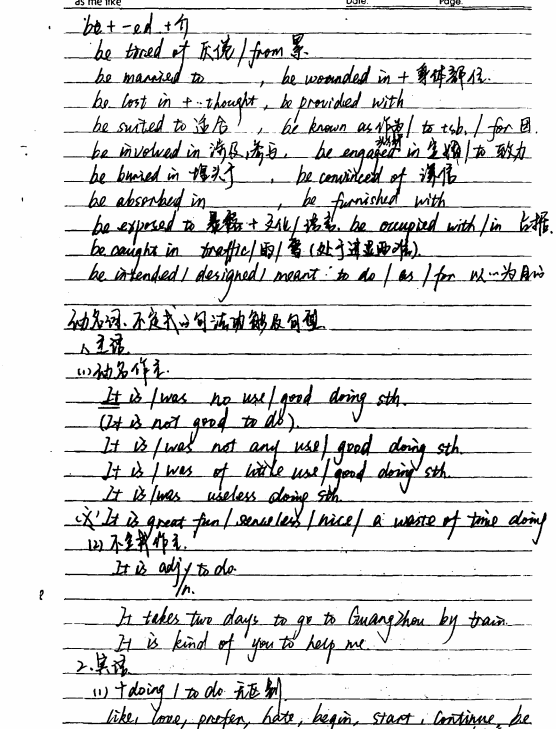 as me like Date: Page:
be + -ed + 介
be tired of 厌倦 / from 累.
be married to , be wounded in + 身体部位.
be lost in + thought, be provided with
be suited to 适合 , be known as 作为 / to +sb. / for 因.
be involved in 涉及,参与, be engaged in / to 致力
be buried in 埋头于 , be convinced of 深信
be absorbed in , be furnished with
be exposed to 暴露 + 文化 / 语言. be occupied with / in 占据.
be caught in traffic / 雨 / 雪 (处于进退两难).
be intended / designed / meant to do / as / for 以…为目的
动名词、不定式的句法功能及句型
1、主语.
(1) 动名作主.
It is / was no use / good doing sth.
(It is not good to do).
It is / was not any use / good doing sth.
It is / was of little use / good doing sth.
It is / was useless doing sth.
It is great fun / senseless / nice / a waste of time doing
(2) 不定式作主.
It is adj / to do
/n.
It takes two days to go to GuangZhou by train.
It is kind of you to help me
2. 宾语
(1) + doing / to do 无区别
like, love, prefer, hate, begin, start, continue, be